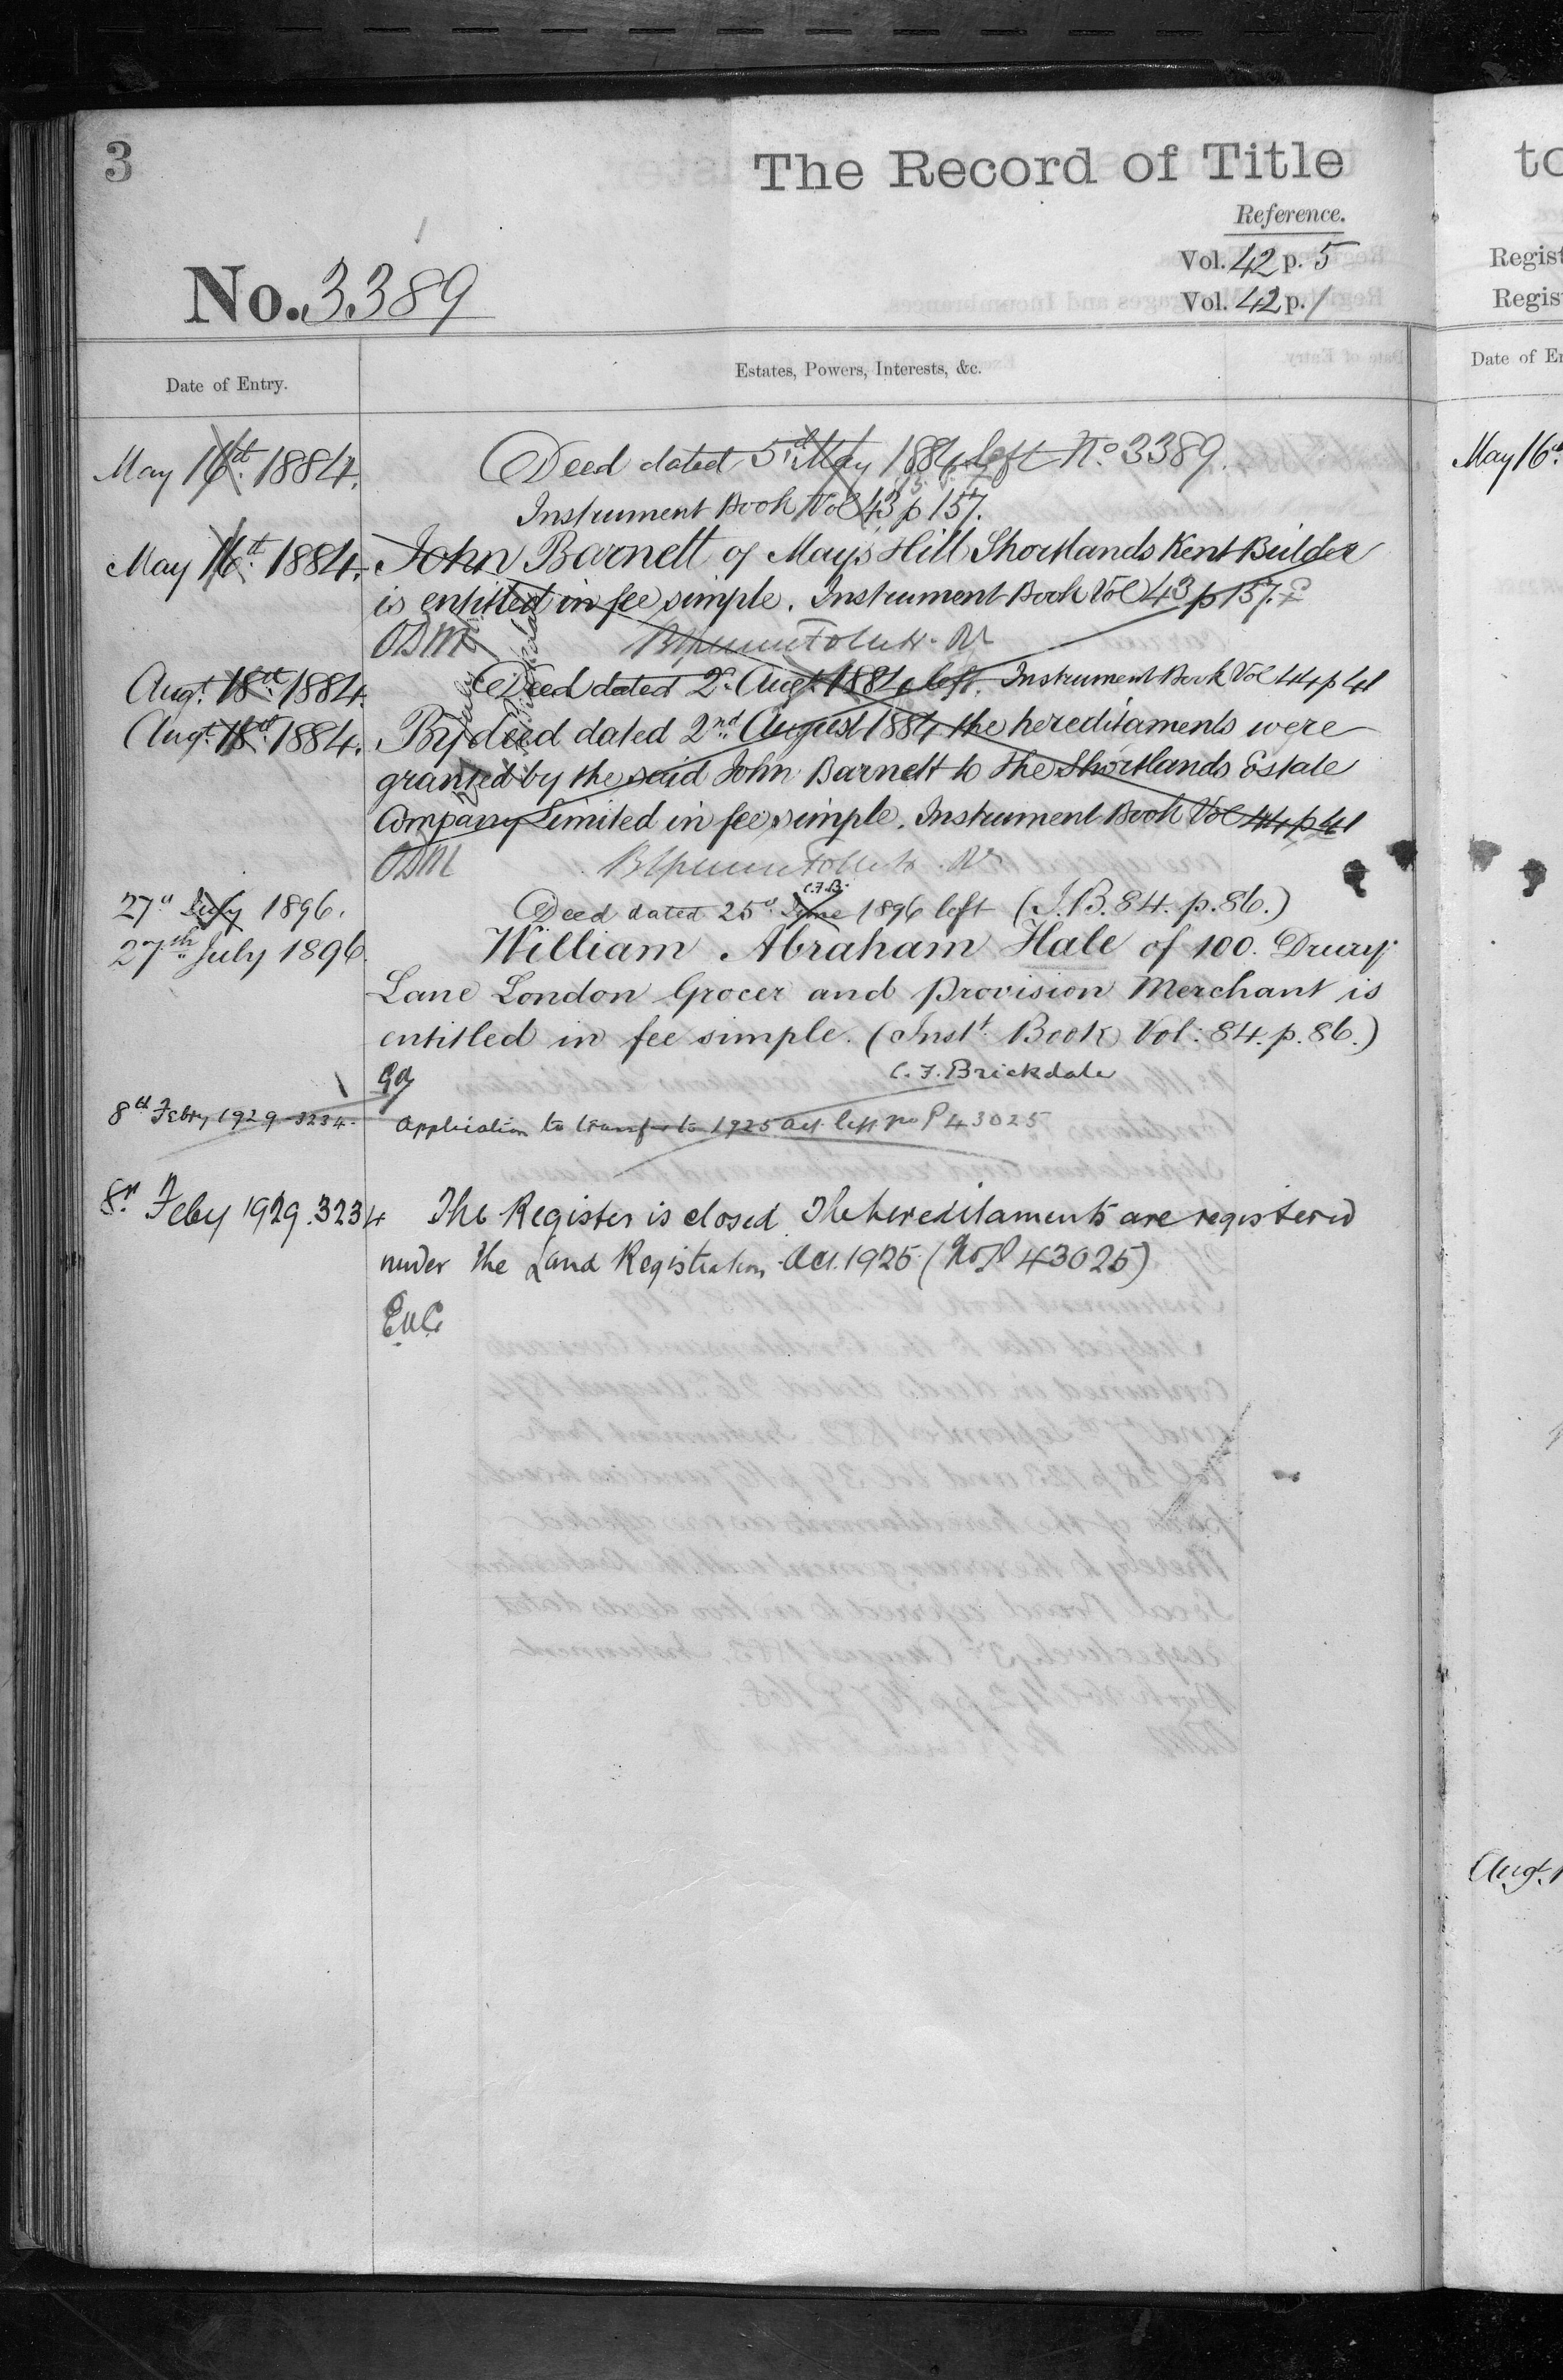 3
The Record of Title
Reference.
Vol. 42 p. 5
Vol. 42 p. 1
No. 3389
Date of Entry.
Estates, Powers, Interests, &c.
May 16th 1884.
Deed dated 5th May 1884 left No 3389.
Instrument Book Vol 43 p 157.
May 16th 1884.
John Barnett of Mays Hill Shortlands Kent Builder
is entitled in fee simple. Instrument Book Vol 43 p 157.
ODM
Augt. 18th 1884.
Deed dated 2d Augt 1884 left. Instrument Book Vol 44 p 41
Augt. 18th 1884.
By deed dated 2nd August 1884 the hereditaments were
granted by the said John Barnett to the Shortlands Estate
Company Limited in fee simple. Instrument Book Vol 44 p 41
ODM
C.F.B.
27th July 1896.
Deed dated 25th June 1896 left (I.B. 84. p. 86.)
27th July 1896.
William Abraham Hale of 100. Drury
Lane London Grocer and Provision Merchant is
entitled in fee simple. (Inst. Book Vol: 84. p. 86.)
C. F. Brickdale
8th Febry 1929 3234.
Application to transfer to 1925 Act left No P 43025
8th Feby 1929. 3234
The Register is closed. The hereditaments are registered
under the Land Registration Act. 1925 (No P 43025)
to
Regist
Regis
Date of En
May 16th
Augt. 1